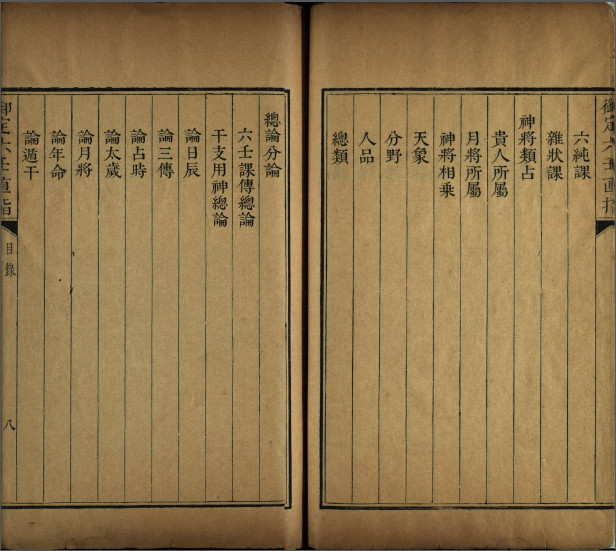 御定六壬直指
六純課
雜狀課
神將類占
貴人所屬
月將所屬
神將相乗
天象
分野
人品
總類
總論分論
六壬課傳總論
干支用神總論
論日辰
論三傳
論占時
論太歲
論月將
論年命
論遁干
御定六壬直指
目錄
八